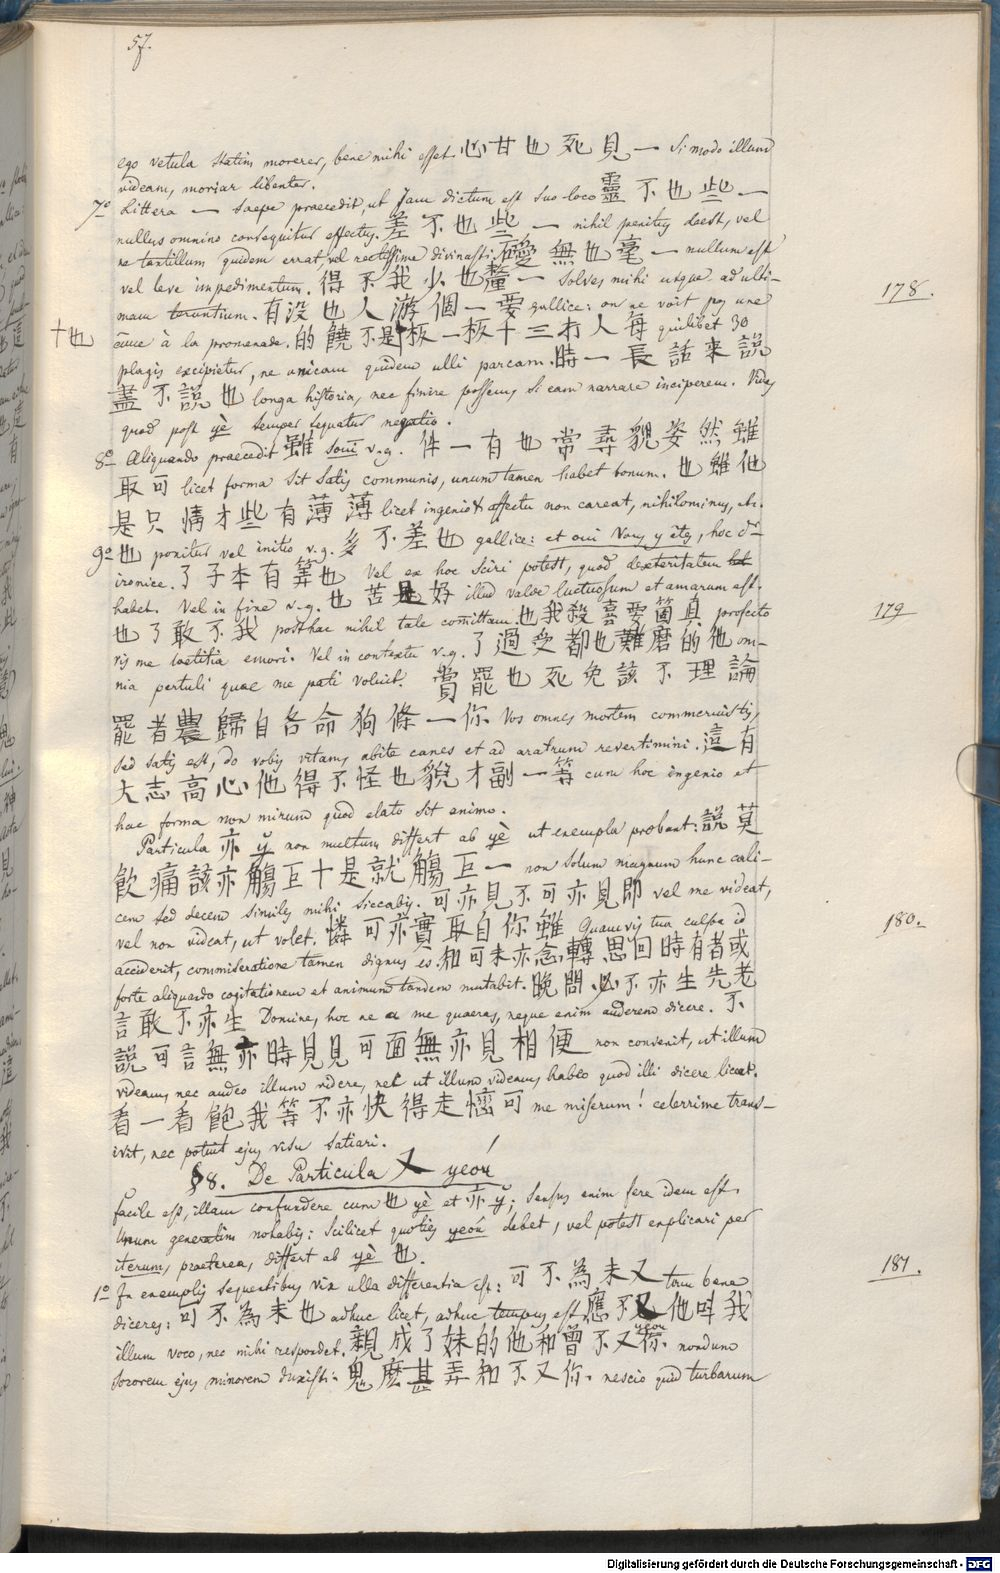 57.
ego vetula statim morerer, bene mihi esset. 心甘也死見一 Si modo illum
videam, moriar libenter.
7º Littera 一 saepe praecedit, ut jam dictum est suo loco 靈不也些一
nullus omnino consequitur effectus. 差不也些一 nihil penitus deest, vel
ne tantillum quidem errat, vel rectissime divinasti. 礙無也毫一 nullum est
vel leve impedimentum. 得不我少也釐一 Solves mihi usque ad ulti-
mum teruntium. 有没也人游個一要 gallice: on ne voit pas une 178.
十也 âme à la promenade. 的饒不是板一板十三打人每 quilibet 30
plagis excipietur, ne unicam quidem ulli parcam. 時一長話来説
盡不説也 longa historia, nec finire possem, si eam narrare inciperem. Vides
quod post yè semper sequatur negatio.
8º Aliquando praecedit 雖 v.g. 件一有也常尋貌姿然雖
取可 licet forma sit satis communis, unum tamen habet bonum. 也雖他
是只情才些有薄薄 licet ingenio & affectu non careat, nihilominus, etc.
9º 也 ponitur vel initio v.g. 多不差也 gallice: et oui vous y êtes, hoc dr
ironice. 了子本有筭也 Vel ex hoc sciri potest, quod dexteritatem
habet. Vel in fine v.g. 也苦是好 illud valde luctuosum et amarum est.
也了敢不我 posthac nihil tale comittam. 也我殺喜要箇真 profecto 179
vis me laetitia emori. Vel in contextu v.g. 了過受都也難磨的他 om-
nia pertuli quae me pati voluit. 賣罷也死免該不理論
罷者農歸自各命狗條一你 Vos omnes mortem commeruistis,
sed satis est, do vobis vitam, abite canes et ad aratrum revertimini. 這有
大志高心他得不怪也貌才副一等 cum hoc ingenio et
hac forma non mirum quod elato sit animo.
Particula 亦 non multum differt ab yè ut exempla probant: 説莫
飲痛該亦觴巨十是就觴巨一 non solum magnum hunc cali-
cem sed decem similes mihi siccabis. 可亦見不可亦見即 vel me videat,
vel non videat, ut volet. 憐可亦實取自你雖 Quamvis tua culpa id 180.
acciderit, commiseratione tamen dignus es. 知可未亦念轉思回時有者或
forte aliquando cogitationem et animum tandem mutabit. 晚問必不亦生先老
言敢不亦生 Domine, hoc ne a me quaeras, neque enim auderem dicere. 不
説可言無亦時見見可面無亦見相便 non convenit, ut illum
videam, nec audeo illum videre, nec ut illum videam, habeo quod illi dicere liceat.
看一看飽我等不亦快得走惱可 me miserum! celerrime trans-
ivit, nec potuit ejus visu satiari.
§8. De Particula 又 yeou
Facile est, illam confundere cum 也 yè et 亦; sensus enim fere idem est.
Unum generatim notabis: Scilicet quoties yeou debet, vel potest explicari per
iterum, praeterea, differt ab yè 也.
1º In exemplis sequentibus vix ulla differentia est: 可不為未又 tam bene 181.
diceres: 可不為未也 adhuc licet, adhuc tempus est. 應不又他呌我
illum voco, nec mihi respondet. 親成了妹的他和曾不又你 yeou nondum
sororem ejus minorem duxisti. 鬼麽甚弄知不又你 nescio quid turbarum
Digitalisierung gefördert durch die Deutsche Forschungsgemeinschaft - DFG